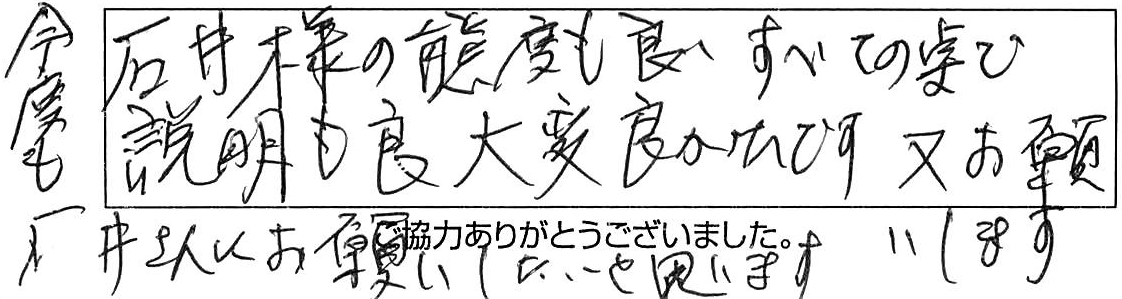 石井様の態度も良いすべての点で
説明も良大変良かったです 又お願
いします
今度も
石井さんにお願いしたいと思います
ご協力ありがとうございました。